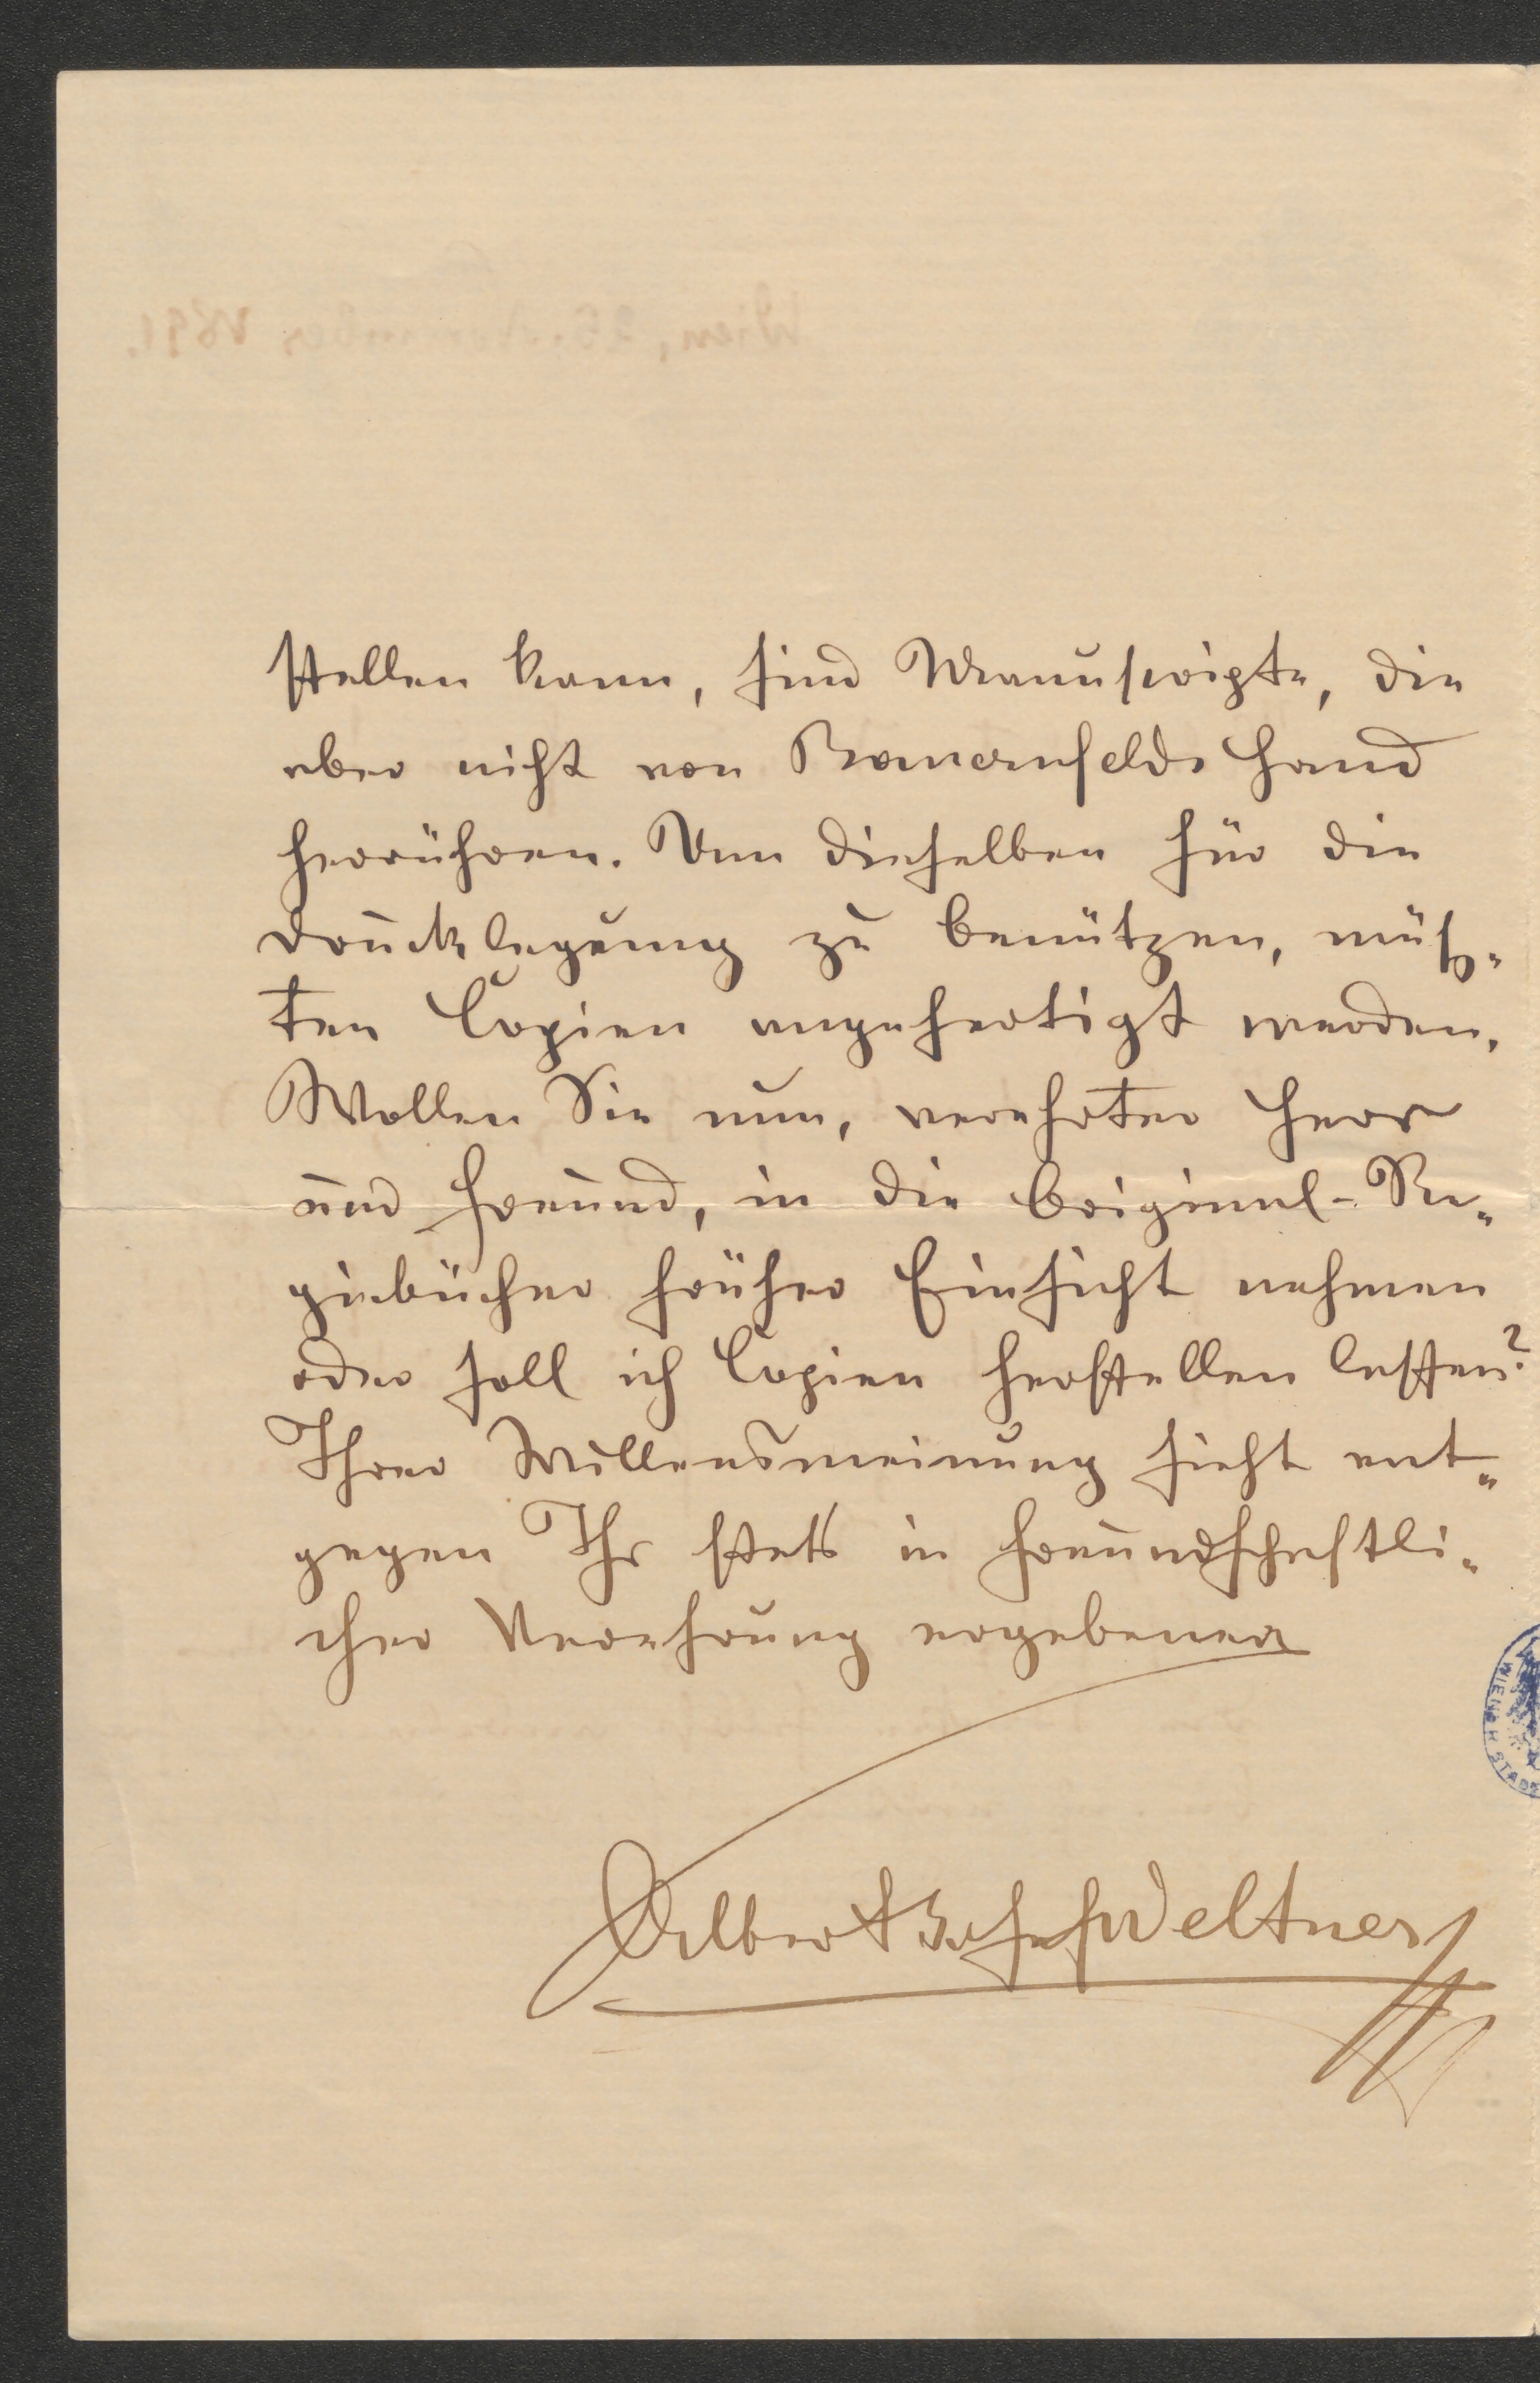 stellen kann, sind Manuscripte, die
aber nicht von Bauernfelds Hand
herrühren. Um dieselben für die
Drucklegung zu benützen, müß-
ten Copien angefertigt werden.
Wollen Sie nun, verehrter Herr
und Freund, in die Original-Re-
giebücher früher Einsicht nehmen
oder soll ich Copien herstellen lassen?
Ihrer Willensmeinung sieht ent-
gegen Ihr stets in freundschaftli-
cher Verehrung ergebener
Albert Weltner
WIENER STADT